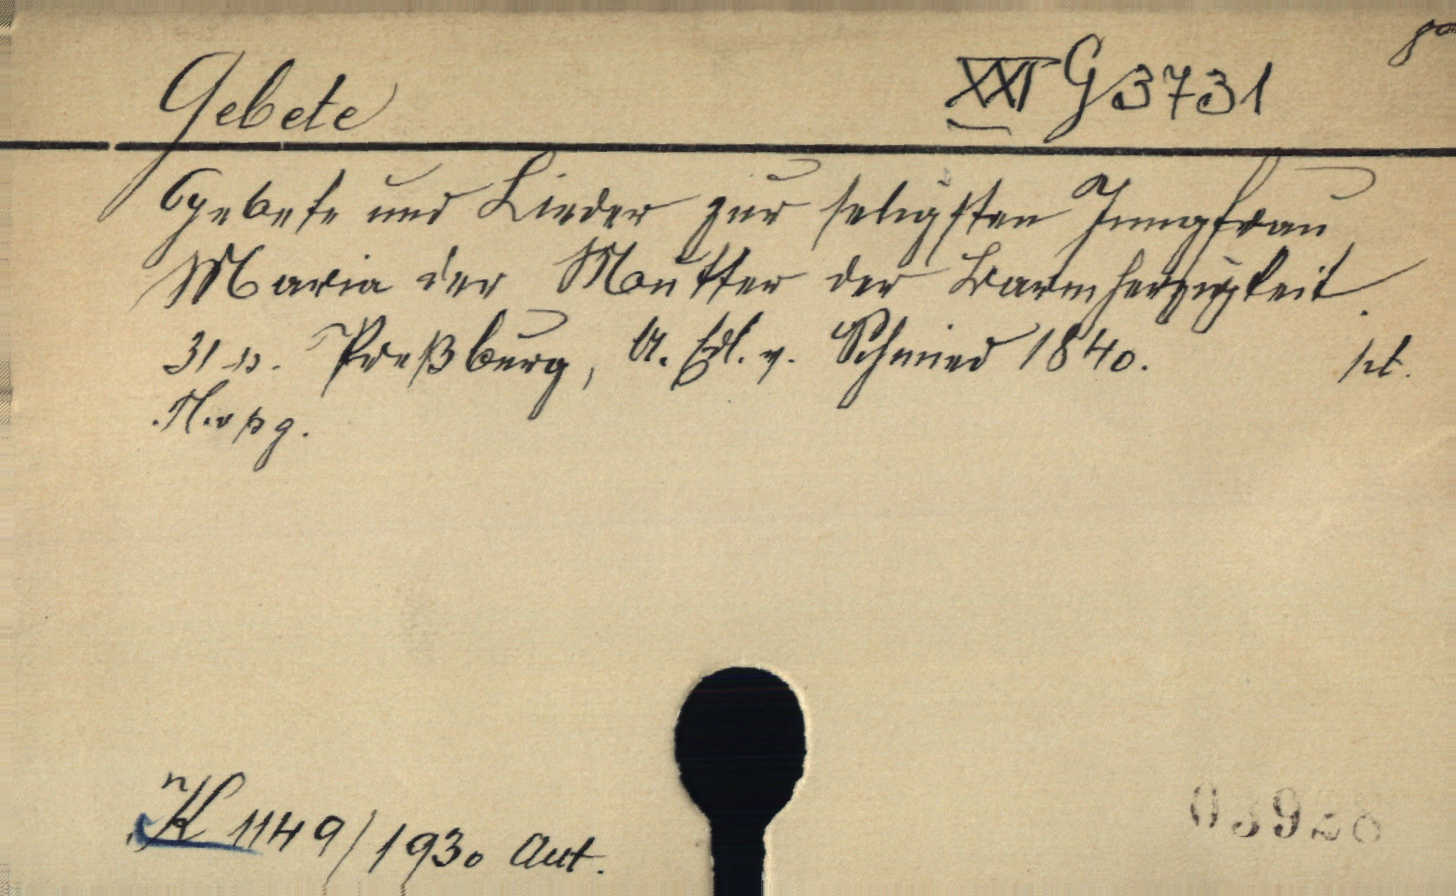 8°
Gebete XXI G 3731
Gebete und Lieder zur seligsten Jungfrau
Maria der Mutter der Barmherzigkeit.
31 s. Preßburg, A. Edl. v. Schmied 1840.
K 1149/1930 Ant.
03928